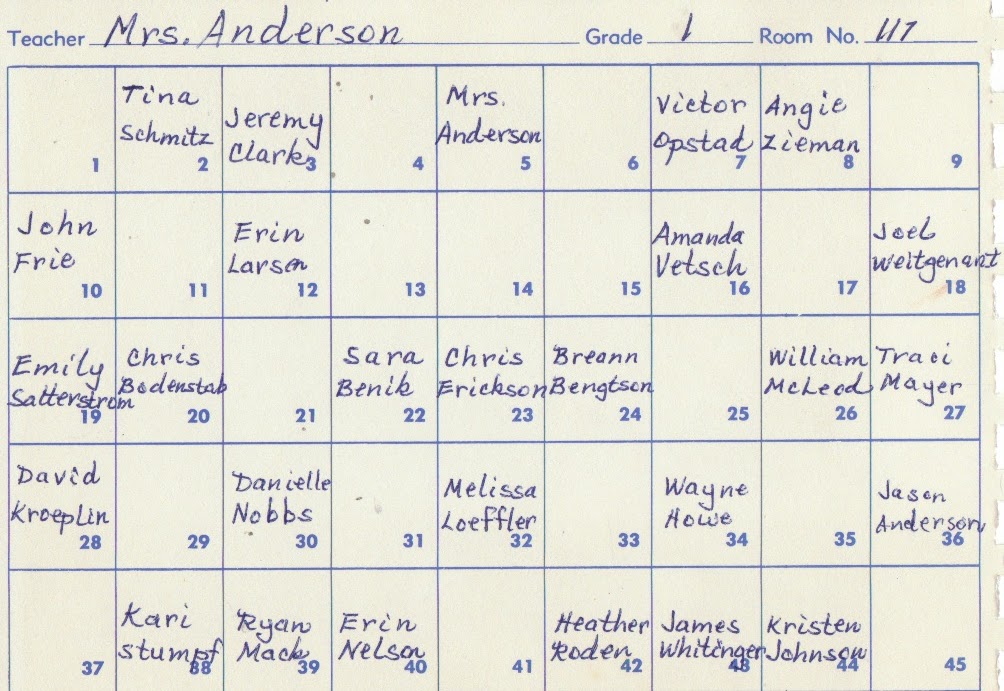 Teacher Mrs. Anderson Grade 1 Room No. 117
1
Tina
Schmitz
2
Jeremy
Clark
3
4
Mrs.
Anderson
5
6
Victor
Opstad
7
Angie
Zieman
8
9
John
Frie
10
11
Erin
Larson
12
13
14
15
Amanda
Vetsch
16
17
Joel
Weitgenant
18
Emily
Satterstrom
19
Chris
Bodenstab
20
21
Sara
Benik
22
Chris
Erickson
23
Breann
Bengtson
24
25
William
McLeod
26
Traci
Mayer
27
David
Kroeplin
28
29
Danielle
Nobbs
30
31
Melissa
Loeffler
32
33
Wayne
Howe
34
35
Jason
Anderson
36
37
Kari
Stumpf
38
Ryan
Mack
39
Erin
Nelson
40
41
Heather
Roden
42
James
Whitinger
43
Kristen
Johnson
44
45